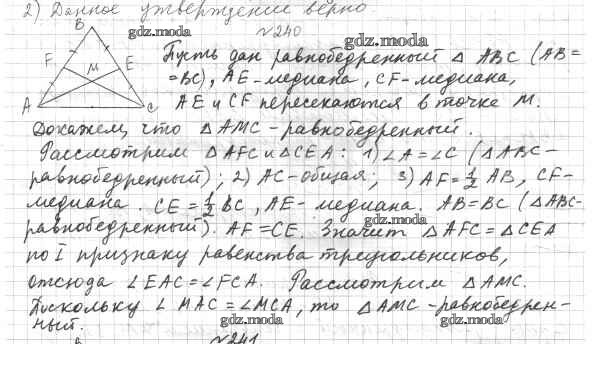 2) Данное утверждение верно.
№240
B
F
M
E
A
C
gdz.moda
gdz.moda
Пусть дан равнобедренный △ ABC (AB=
=BC), AE-медиана, CF-медиана,
AE и CF пересекаются в точке M.
Докажем, что △AMC-равнобедренный.
Рассмотрим △AFC и △CEA: 1) ∠A=∠C (△ABC-
равнобедренный); 2) AC-общая; 3) AF=1/2 AB, CF-
медиана. CE=1/2 BC, AE- медиана. AB=BC (△ABC-
gdz.moda
равнобедренный). AF=CE. Значит △AFC=△CEA
по I признаку равенства треугольников,
отсюда ∠EAC=∠FCA. Рассмотрим △AMC.
Поскольку ∠MAC=∠MCA, то △AMC-равнобедрен-
ный.
gdz.moda
gdz.moda
№241